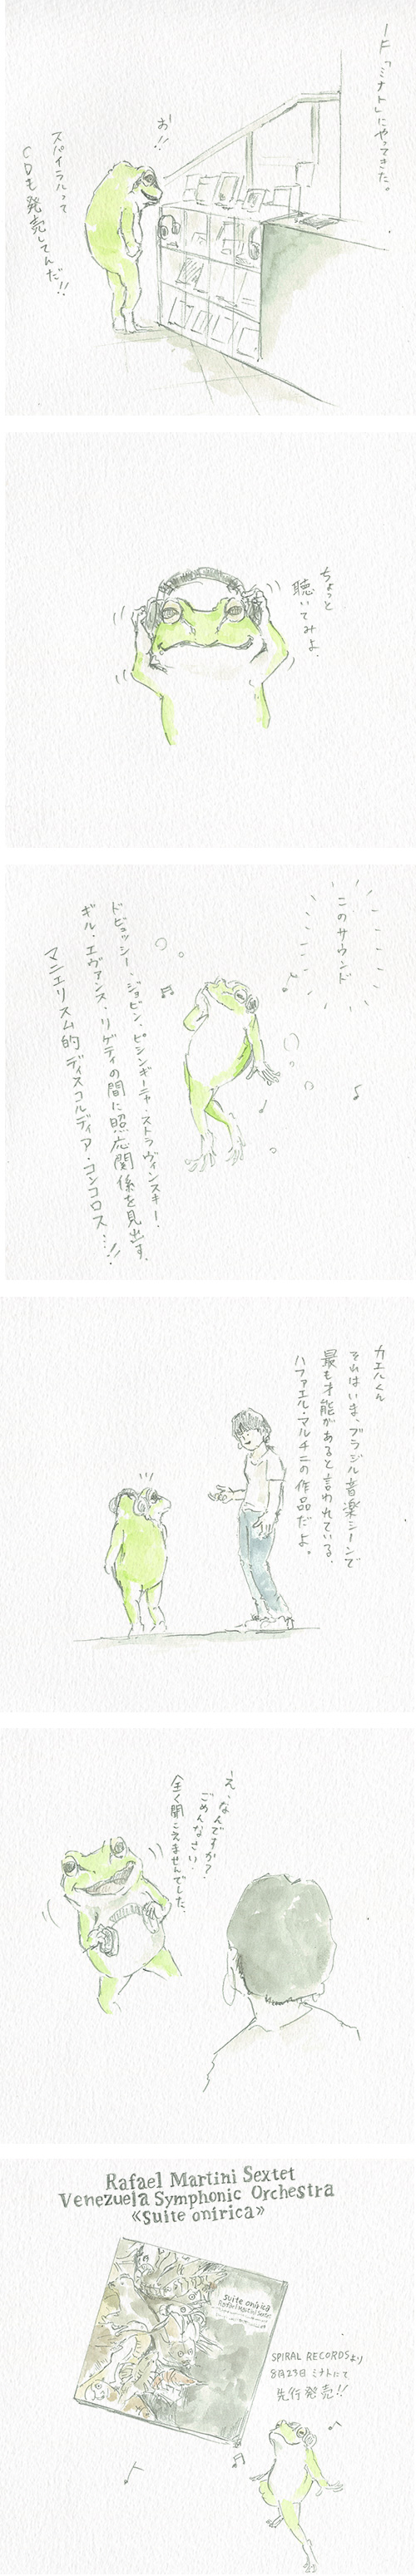 1F「ミナト」にやってきた。
お!!
スパイラルって
CDも発売してんだ!!
ちょっと
聴いてみよ.
このサウンド
ドビュッシー・ジョビン・ピシンギーニャ・ストラヴィンスキー・
ギル・エヴァンス・リゲティの間に照応関係を見出す、
マニエリスム的ディスコルディア・コンコロス…!!
カエルくん
それはいま、ブラジル音楽シーンで
最も才能があると言われている、
ハファエル・マルチニの作品だよ。
え、なんですか?
ごめんなさい、
全く聞こえませんでした、
Rafael Martini Sextet
Venezuela Symphonic Orchestra
《Suite onirica》
suite onirica
Rafael Martini Sextet
SPIRAL RECORDSより
8月23日 ミナトにて
先行発売!!